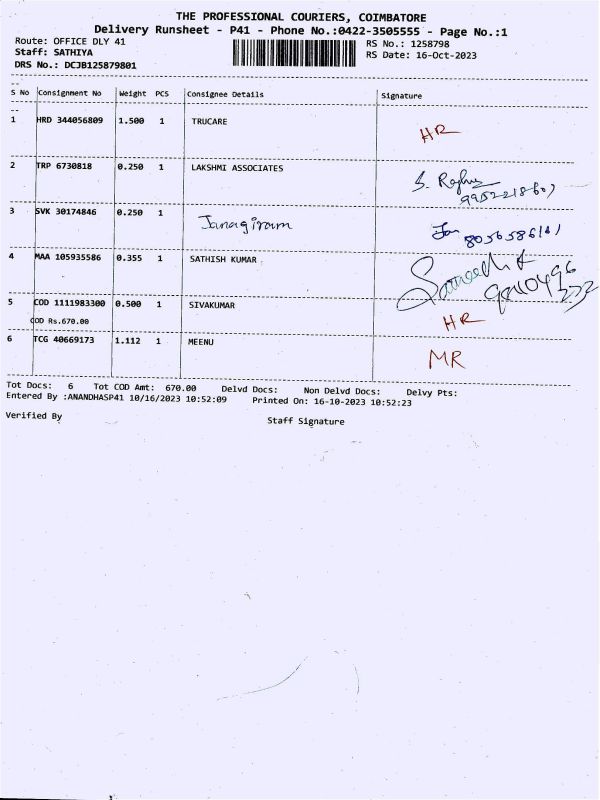 THE PROFESSIONAL COURIERS, COIMBATORE
Delivery Runsheet - P41 - Phone No.:0422-3505555 - Page No.:1
Route: OFFICE DLY 41 RS No.: 1258798
Staff: SATHIYA RS Date: 16-Oct-2023
DRS No.: DCJB125879801
S No Consignment No Weight PCS Consignee Details Signature
1 HRD 344056809 1.500 1 TRUCARE HR
2 TRP 6730818 0.250 1 LAKSHMI ASSOCIATES S.
3 SVK 30174846 0.250 1 Janagiram
4 MAA 105935586 0.355 1 SATHISH KUMAR
5 COD 1111983300 0.500 1 SIVAKUMAR HR
COD Rs.670.00
6 TCG 40669173 1.112 1 MEENU MR
Tot Docs: 6 Tot COD Amt: 670.00 Delvd Docs: Non Delvd Docs: Delvy Pts:
Entered By :ANANDHASP41 10/16/2023 10:52:09 Printed On: 16-10-2023 10:52:23
Verified By Staff Signature